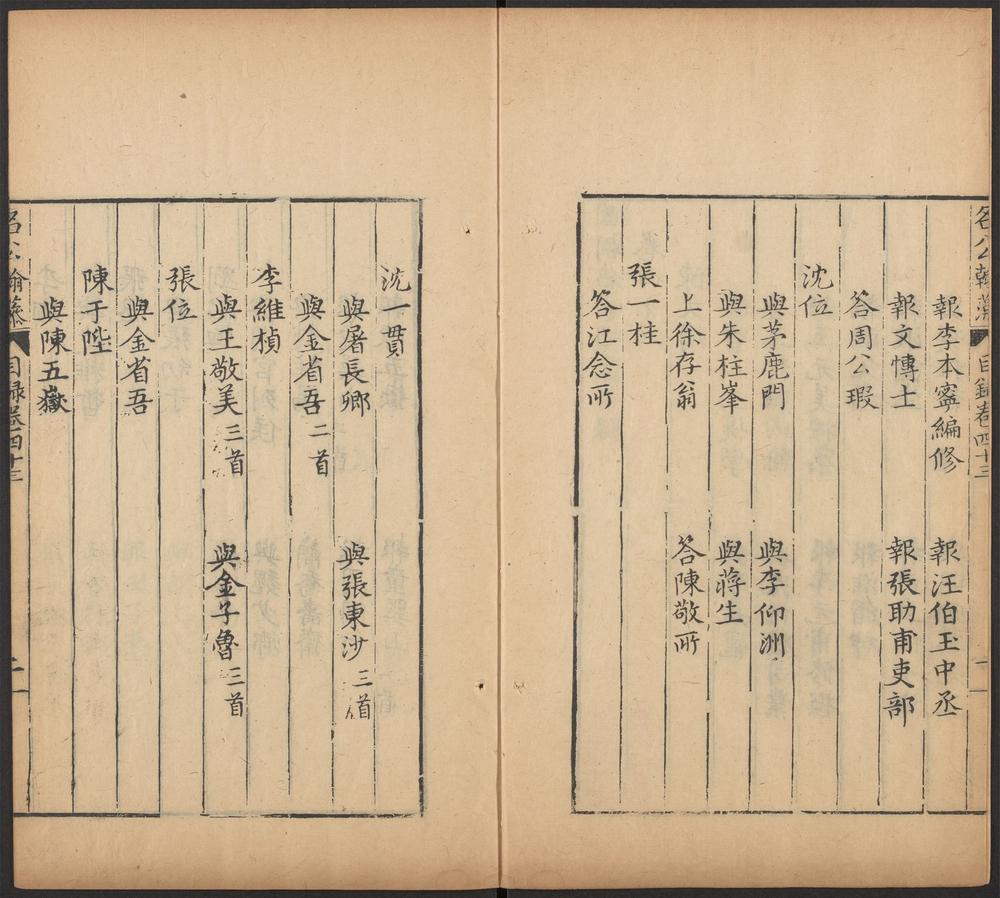 名公翰藻 目錄卷四十三 一
報李本寧編修 報汪伯玉中丞
報文博士 報張助甫吏部
答周公瑕
沈位
與茅鹿門 與李仰洲
與朱柱峯 與蔣生
上徐存翁 答陳敬所
張一桂
答江念所
沈一貫
與屠長卿 與張東沙三首
與金省吾二首
李維楨
與王敬美三首 與金子魯三首
張位
與金省吾
陳于陛
與陳五嶽
名公翰藻 目録卷四十三 二